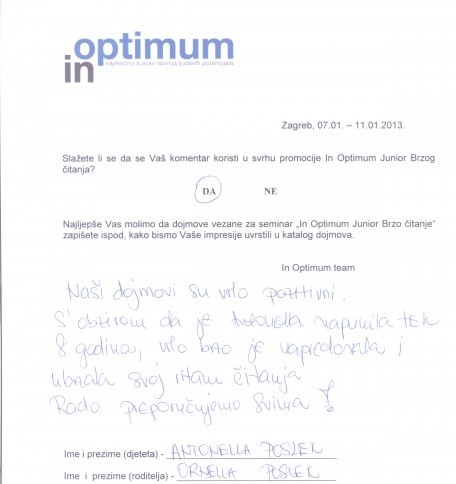 optimum
in najmoćniji sustav razvoja ljudskih potencijala
Zagreb, 07.01. – 11.01.2013.
Slažete li se da se Vaš komentar koristi u svrhu promocije In Optimum Junior Brzog
čitanja?
DA NE
Najljepše Vas molimo da dojmove vezane za seminar „In Optimum Junior Brzo čitanje"
zapišete ispod, kako bismo Vaše impresije uvrstili u katalog dojmova.
In Optimum team
Naši dojmovi su vrlo pozitivni.
S' obzirom da je Antonella napunila tek
8 godina, vrlo brzo je napredovala i
ubrzala svoj ritam čitanja.
Rado preporučujemo svima!
Ime i prezime (djeteta) - ANTONELLA POSLEK
Ime i prezime (roditelja) - ORNELLA POSLEK